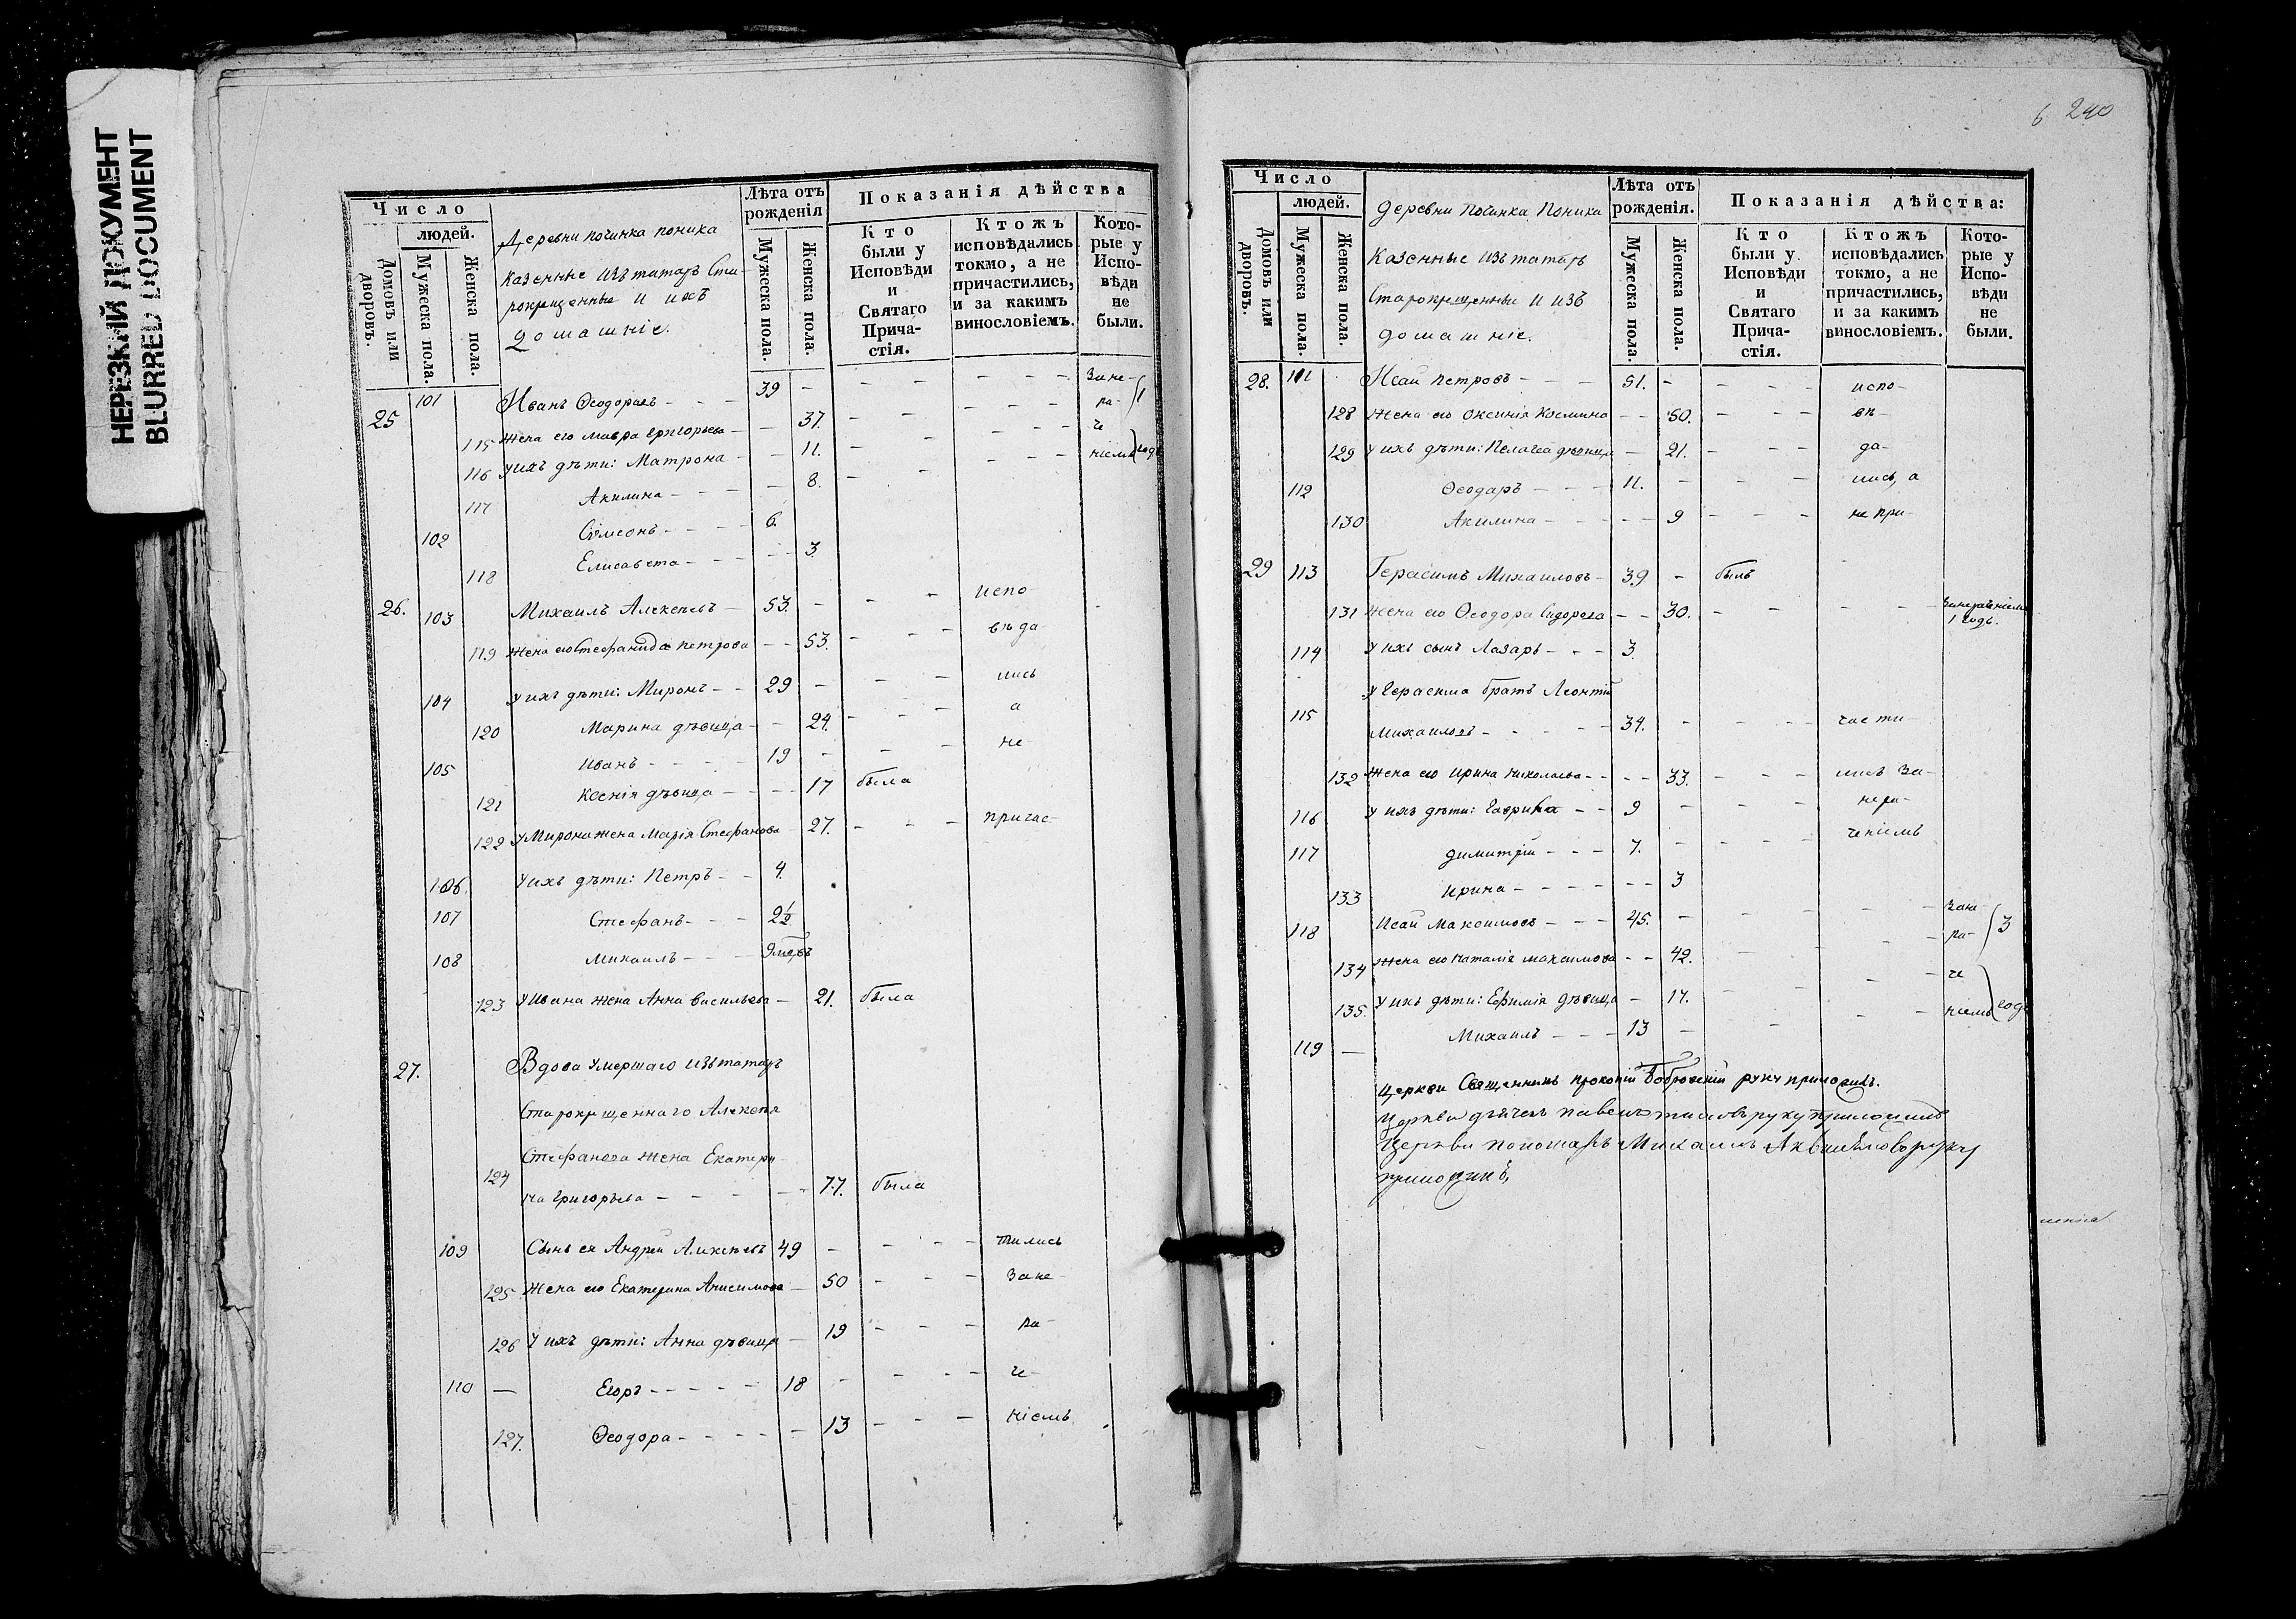 НЕРЕЗКИЙ ДОКУМЕНТ
BLURRED DOCUMENT
Число
людей.
Домовъ или дворовъ.
Мужеска пола.
Женска пола.
Деревни починка поника
казенные изъ татаръ Ста-
рокрещенные и ихъ
домашніе.
Лѣта отъ рожденія
Мужеска пола.
Женска пола.
Показанія дѣйства
Кто были у Исповѣди и Святаго Прича-стія.
Ктожъ исповѣдались токмо, а не причастились, и за какимъ винословіемъ.
Кото-рые у Испо-вѣди не были.
25 101 Иванъ Ѳеодоровъ - - - 39 - - - - - - Зане-
115 Жена его Мавра Григорьева - - 37. - - - - - ра- 1
116 У ихъ дѣти: Матрона - - 11. - - - - - че
117 Акилина - - - - 8. - - - - - ніемъ годъ
102 Сѵмеонъ - - - - 6.
118 Елисавета - - - - - 3.
26. 103 Михаилъ Алексѣевъ - 53. - - - испо-
119 Жена его Стефанида Петрова - - 53. - - - вѣда-
104 У ихъ дѣти: Миронъ - - 29 - - - лись
120 Марина дѣвица - - 24. - - - а
105 Иванъ - - - - 19 - - - не-
121 Ксенія дѣвица - - - - 17 была
122 У Мирона жена Марія Стефанова - 27. - - - причас-
106. У ихъ дѣти: Петръ - - 4.
107 Стефанъ - - - 2 1/2
108 Михаилъ - - - 9 мѣс.
123 У Ивана жена Анна Васильева - 21. была
27. Вдова умершаго изъ татаръ
Старокрещеннаго Алексѣя
124 Стефанова жена Екатери-
на Григорьева - - - - - - 77. была
109 Сынъ ея Андрей Алексѣевъ 49 - - - - тились
125 Жена его Екатерина Анисимова - 50 - - - Зане-
126 У ихъ дѣти: Анна дѣвица - 19 - - - ра-
110 — Егоръ - - - - - 18 - - - - че-
127. Ѳеодора - - - - - 13 - - - ніемъ
6 240
Число
людей.
Домовъ или дворовъ.
Мужеска пола.
Женска пола.
Деревни Починка Поника
Казенные изъ татаръ
Старокрещенные и ихъ
домашніе.
Лѣта отъ рожденія.
Мужеска пола.
Женска пола.
Показанія дѣйства:
Кто были у Исповѣди и Святаго Прича-стія.
Ктожъ исповѣдались токмо, а не причастились, и за какимъ винословіемъ.
Кото-рые у Испо-вѣди не были.
28. 111 Исай Петровъ - - - 51. - - - - испо-
128 Жена его Оксинія Космина - - 50. - - - вѣ-
129 У ихъ дѣти: Пелагеа дѣвица - 21. - - - да-
112 Ѳеодоръ - - - 11. - - - лись, а
130 Акилина - - - - - 9 - - - не при-
29 113 Герасимъ Михаиловъ - 39 - былъ
131 Жена его Ѳеодора Сидорова - - 30. - - - - Занераченіемъ 1 годъ.
114 У ихъ сынъ Лазарь - - - 3.
У Герасима братъ Леонтій
115 Михаиловъ - - - - - 34. - - - - части-
132 Жена его Ирина Николаева - - - - 33. - - - лись за-
116 У ихъ дѣти: Гаврила - - 9 - - - нера-
117 Димитрій - - - 7. - - - - ченіемъ
133 Ирина - - - - - - 3
118 Исай Максимовъ - - - 45. - - - - - Зане-
ра- 3
134 Жена его Наталіа Максимова - - 42. - - - че
135. У ихъ дѣти: Ефимія дѣвица - 17. - - - - ніемъ год.
119 — Михаилъ - - - 13 -
Церкви Священникъ Прокопій Бобровскій руку приложилъ.
Церкви дьячекъ Павелъ руку приложилъ
Церкви пономарь Михаилъ руку
приложилъ